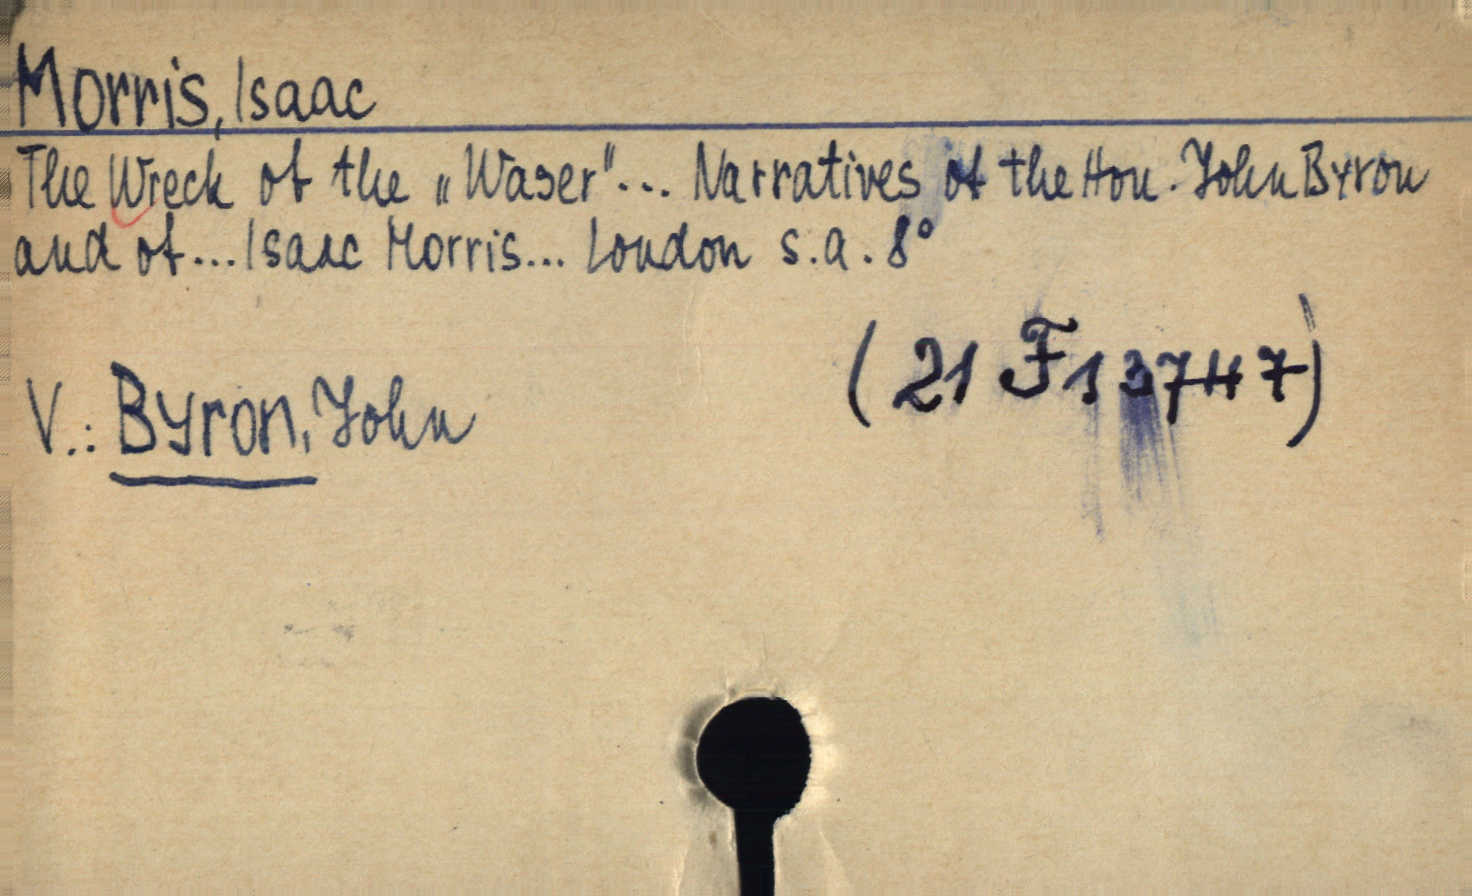 Morris, Isaac
The Wreck of the „Wager"... Narratives of the Hon. John Byron
and of... Isaac Morris... London s.a. 8°
(21 F 13747)
V.: Byron, John